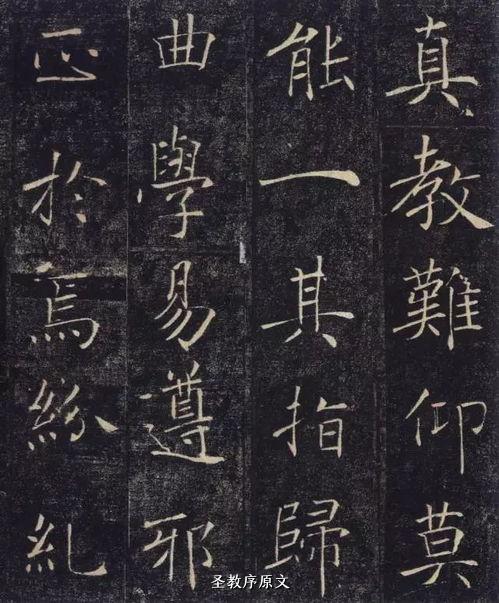 真教難仰莫
能一其指歸
曲學易遵邪
正於焉紛糺
圣教序原文